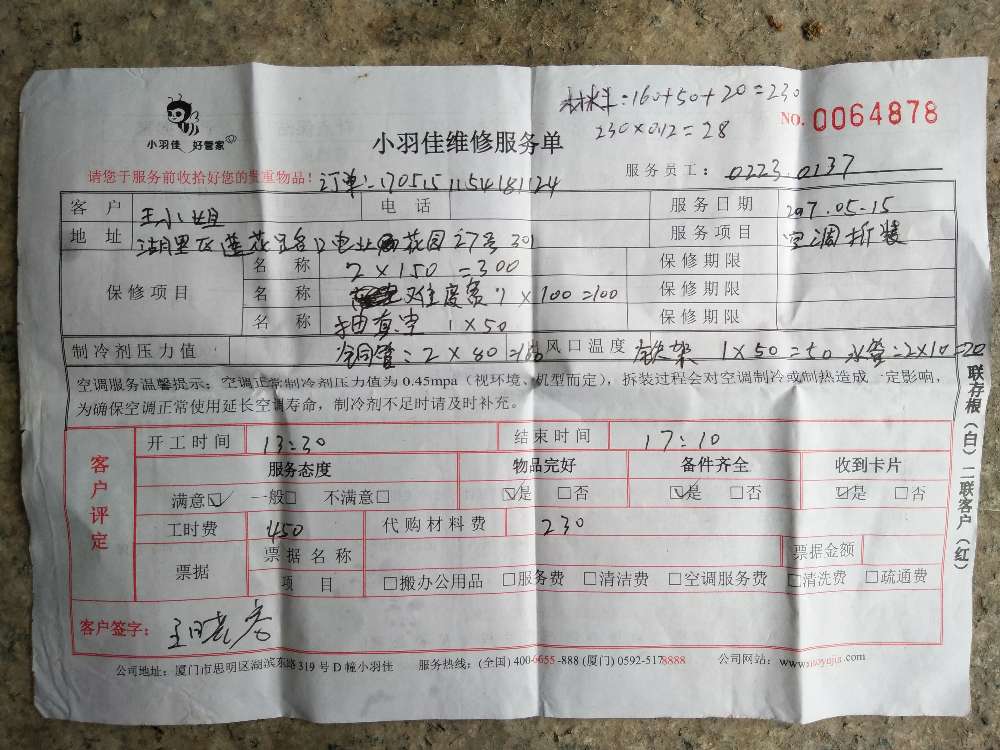 材料:160+50+20=230
230×0.12=28
小羽佳 好管家
小羽佳维修服务单
NO. 0064878
请您于服务前收拾好您的贵重物品!
订单:170515 1154181124
服务员工: 0223.0137
客户 王小姐 电话 服务日期 2017.05-15
地址 湖里区莲花 花园27号301 服务项目 空调拆装
保修项目
名称 2×150=300 保修期限
名称 难度费 1×100=100 保修期限
名称 抽真空 1×50 保修期限
制冷剂压力值 铜管:2×80=160 风口温度 铁架 1×50=50 水管:2×10=20
空调服务温馨提示:空调正常制冷剂压力值为0.45mpa(视环境、机型而定),拆装过程会对空调制冷或制热造成一定影响,
为确保空调正常使用延长空调寿命,制冷剂不足时请及时补充。
联存根(白)二联客户(红)
客户评定
开工时间 13:30 结束时间 17:10
服务态度 物品完好 备件齐全 收到卡片
满意☑ 一般□ 不满意□ ☑是 □否 ☑是 □否 ☑是 □否
工时费 450 代购材料费 230
票据 票据名称 票据金额
项目 □搬办公用品 □服务费 □清洁费 □空调服务费 □清洗费 □疏通费
客户签字:
公司地址:厦门市思明区湖滨东路319号D幢小羽佳 服务热线:(全国)400-6655-888(厦门)0592-5178888 公司网站:www.xiaoyujia.com